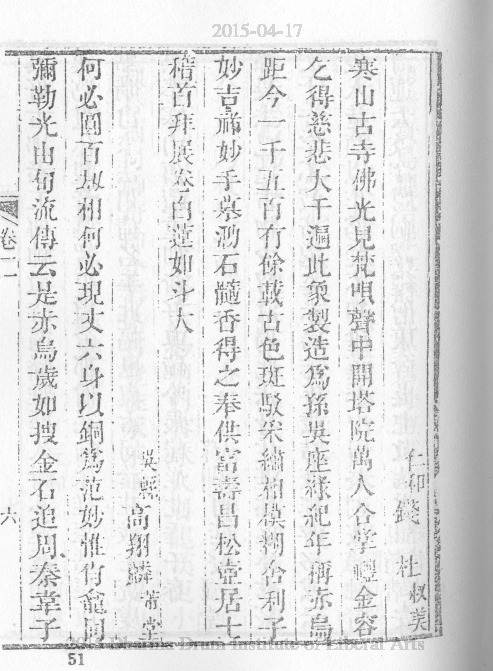 2015-04-17
仁和錢 杜叔美
寒山古寺佛光見梵唄聲中開塔院萬人合掌禮金容
乞得慈悲大千遍此象製造爲孫吳座綠紀年稱赤烏
距今一千五百有餘載古色斑駁采繡相模糊舍利子
妙吉祥妙手摹泐石髓香得之奉供富壽昌松壺居士
稽首拜展卷白蓮如斗大
吳縣高翔麟芾堂
何必圓百劫相何必現丈六身以銅爲范妙惟肖龕同
彌勒光由旬流傳云是赤烏歲如搜金石追周秦韋子
卷二
六
Institute of Liberal Arts
51